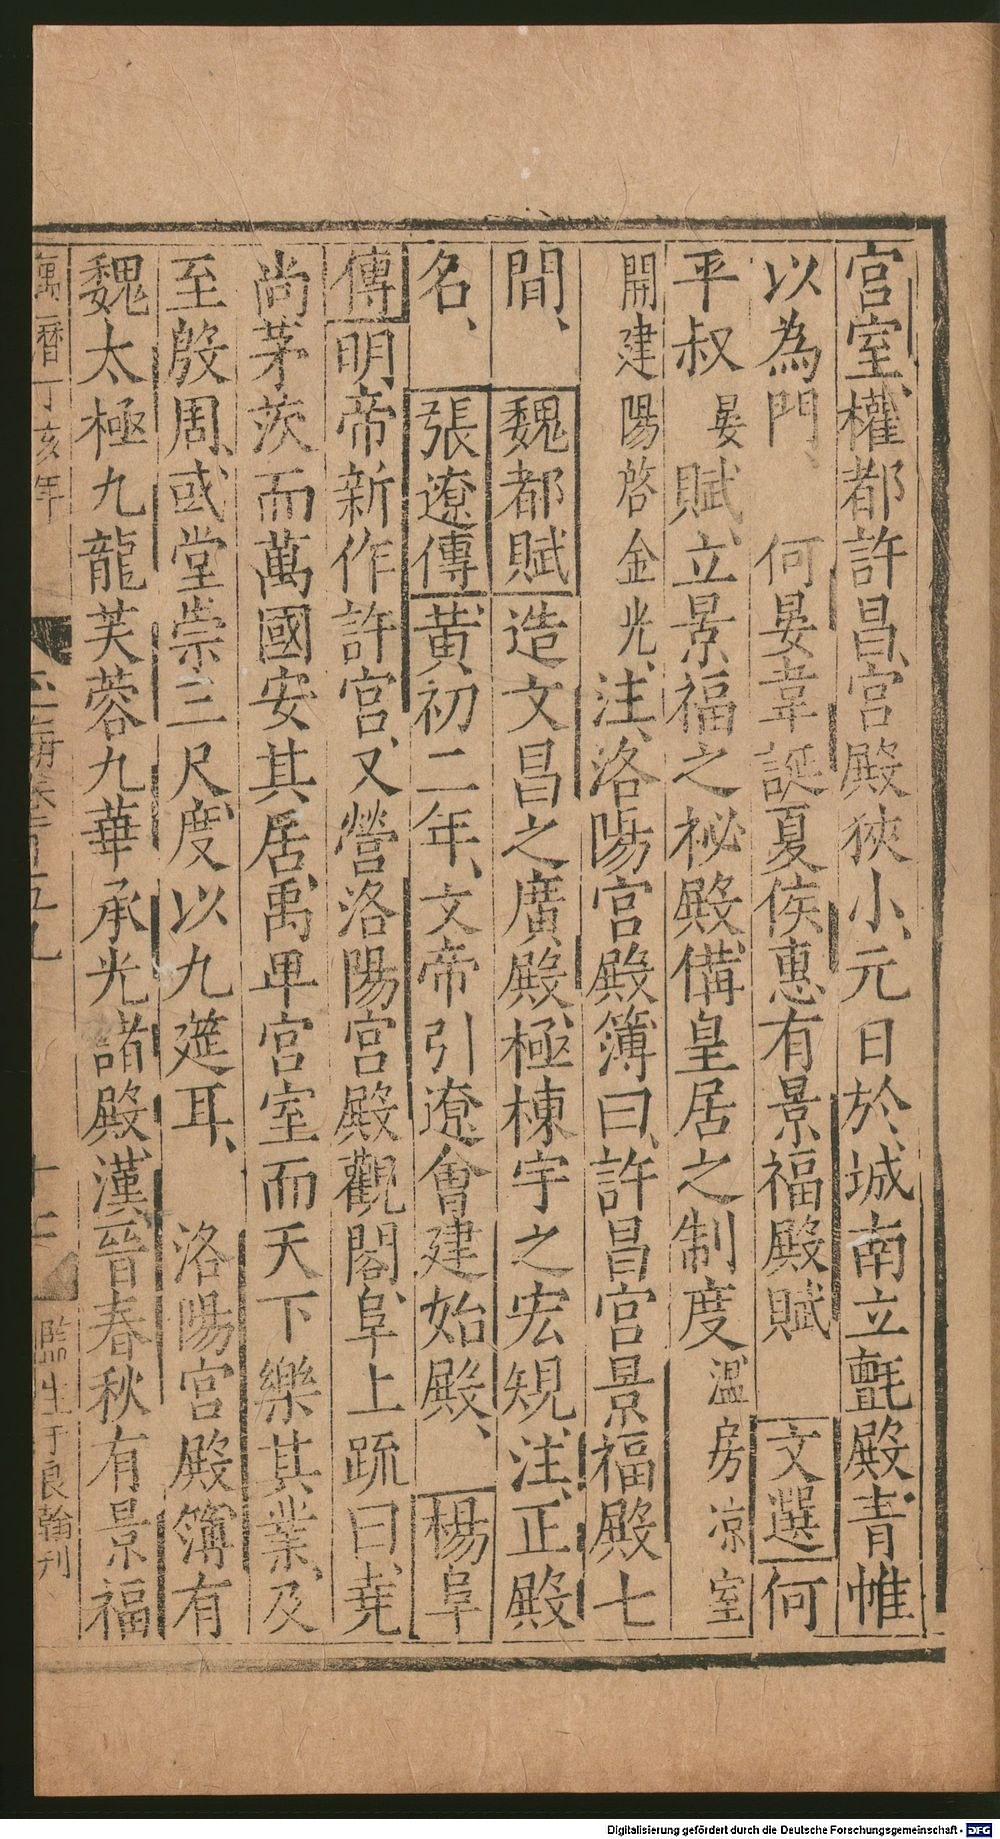 宮室、權都許昌、宮殿狹小、元日於城南立氈殿、青帷
以為門、何晏韋誕夏侯惠有景福殿賦 文選何
平叔晏賦、立景福之祕殿、備皇居之制度溫房凉室
開建陽啓金光、注、洛陽宮殿簿曰、許昌宮景福殿七
間、魏都賦造文昌之廣殿、極棟宇之宏規、注、正殿
名、張遼傳黃初二年、文帝引遼會建始殿、楊阜
傳明帝新作許宮、又營洛陽宮殿觀閣、阜上疏曰、堯
尚茅茨而萬國安其居、禹卑宮室而天下樂其業、及
至殷周、或堂崇三尺、度以九筵耳、洛陽宮殿簿有
魏太極九龍芙蓉九華承光諸殿、漢晉春秋有景福
萬曆丁亥年 玉海卷一百五九 監生于良翰刊
Digitalisierung gefördert durch die Deutsche Forschungsgemeinschaft - DFG